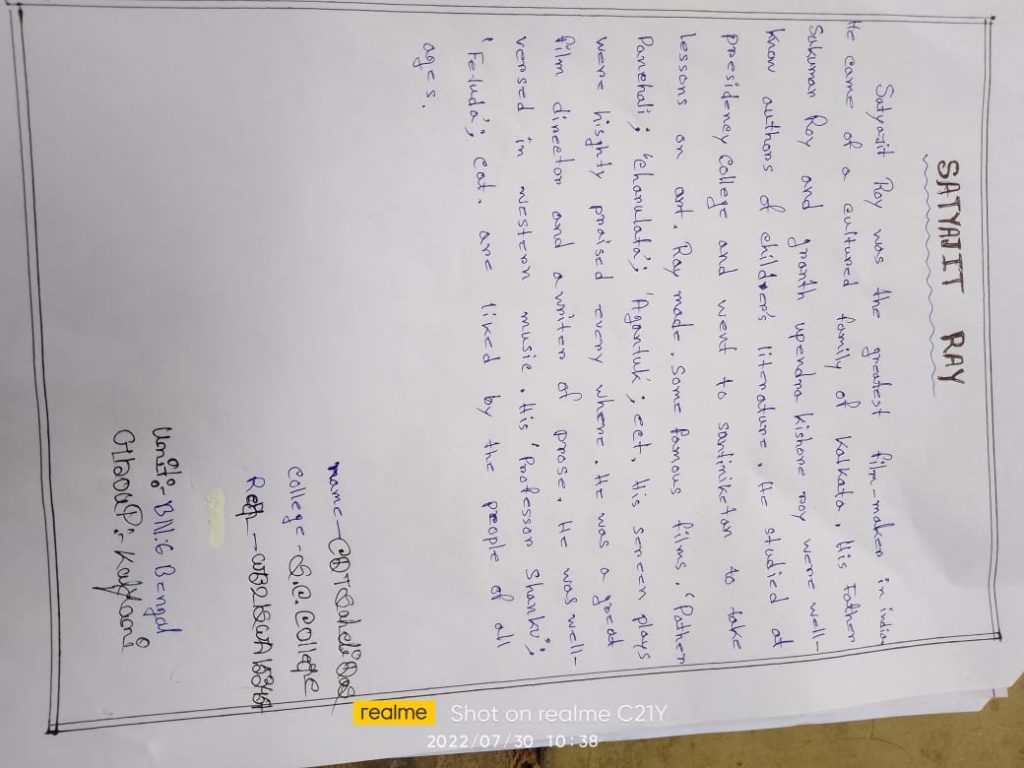 SATYAJIT RAY
Satyajit Ray was the greatest film-maker in india
He came of a cultured family of kolkata. His Father
Sukumar Roy and granth upendra kishore roy were well-
know authors of children's literature. He studied at
presidency College and went to santiniketan to take
lessons on art. Ray made. Some famous films. 'Pather
Panchali', 'charulata', 'Agantuk', ect. His screen plays
were highty praised every where. He was a great
film director and a writer of prose. He was well-
versed in western music. His 'Professor Shanku',
'Feluda', eat. are liked by the people of all
ages.
name- CDT
College - S.C. College
Reg -
Unit:- BN:6 Bengal
realme Shot on realme C21Y
2022/07/30 10:38